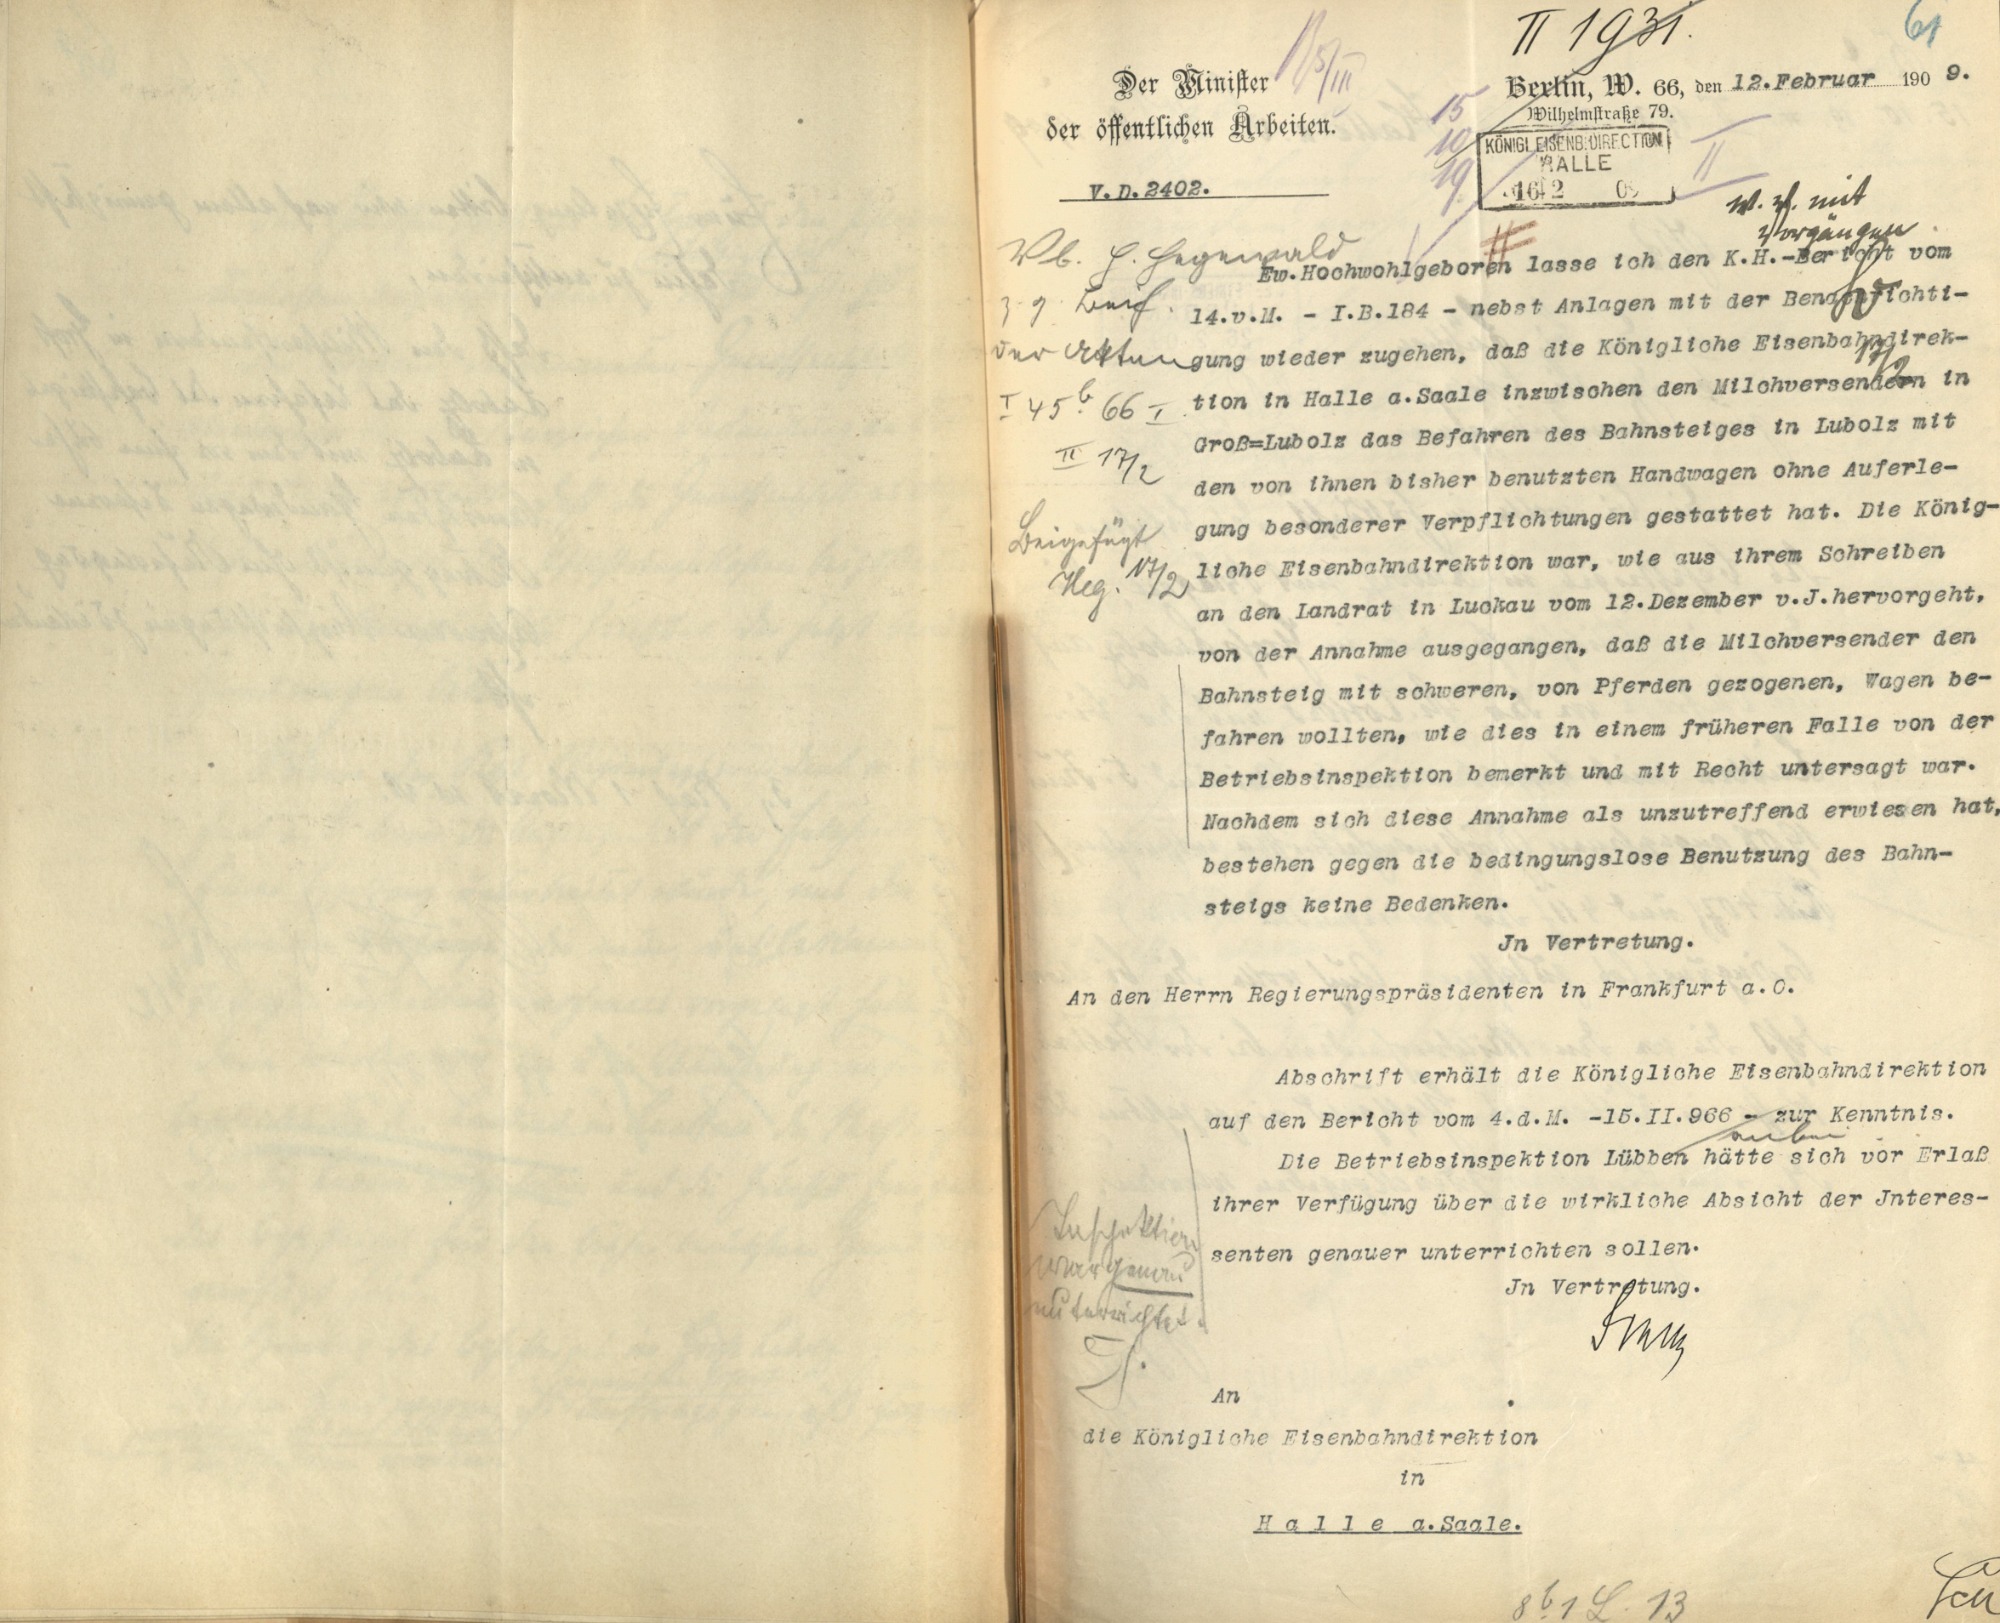 II 1931.
61
Der Minister
der öffentlichen Arbeiten.
V.D.2402.
Berlin, W. 66, den 12.Februar 1909.
Wilhelmstraße 79.
15
10
19.
KÖNIGL EISENB. DIRECTION
HALLE
16 2 09
II
w. v. mit
Vorgängen
H. Hegewald
z. g. Beif.
der Akten
I 45 b 66 I
II 17/2
Beigefügt
Heg. 17/2
Ew.Hochwohlgeboren lasse ich den K.H.-Bericht vom
14.v.M. - I.B.184 - nebst Anlagen mit der Benachrichti-
gung wieder zugehen, daß die Königliche Eisenbahndirek-
tion in Halle a.Saale inzwischen den Milchversendern in
Groß=Lubolz das Befahren des Bahnsteiges in Lubolz mit
den von ihnen bisher benutzten Handwagen ohne Auferle-
gung besonderer Verpflichtungen gestattet hat. Die König-
liche Eisenbahndirektion war, wie aus ihrem Schreiben
an den Landrat in Luckau vom 12.Dezember v.J.hervorgeht,
von der Annahme ausgegangen, daß die Milchversender den
Bahnsteig mit schweren, von Pferden gezogenen, Wagen be-
fahren wollten, wie dies in einem früheren Falle von der
Betriebsinspektion bemerkt und mit Recht untersagt war.
Nachdem sich diese Annahme als unzutreffend erwiesen hat,
bestehen gegen die bedingungslose Benutzung des Bahn-
steigs keine Bedenken.
Jn Vertretung.
An den Herrn Regierungspräsidenten in Frankfurt a.O.
Abschrift erhält die Königliche Eisenbahndirektion
auf den Bericht vom 4.d.M. -15.II.966 - zur Kenntnis.
Die Betriebsinspektion Lübben hätte sich vor Erlaß
ihrer Verfügung über die wirkliche Absicht der Jnteres-
senten genauer unterrichten sollen.
Inspektion
war genau
unterrichtet.
Jn Vertretung.
An
die Königliche Eisenbahndirektion
in
Halle a.Saale.
8b 1 L. 13